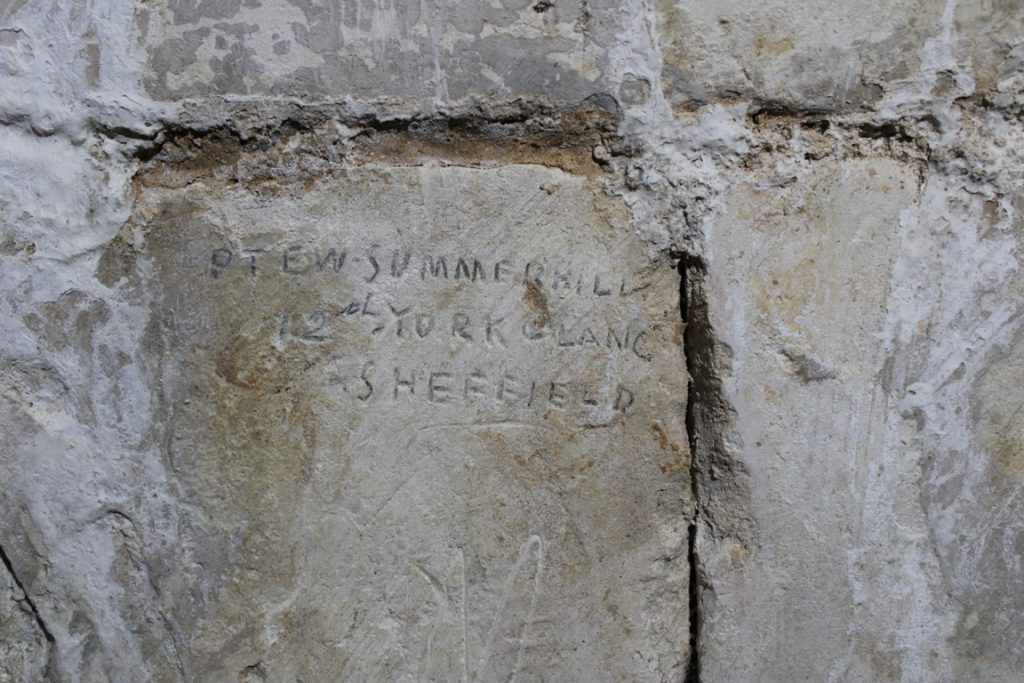 PTE W. SUMMERHILL
12th YORK & LANC
SHEFFIELD